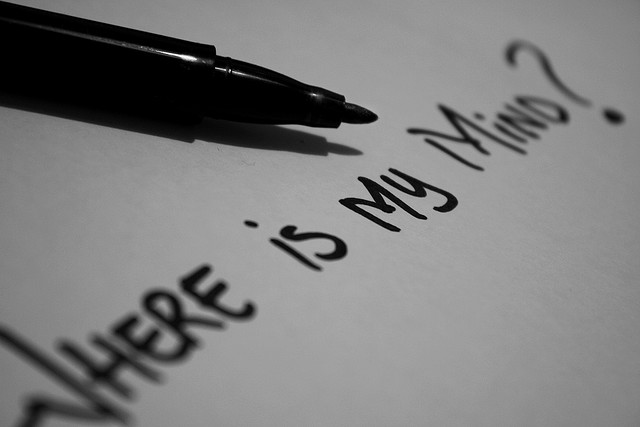 WHERE is My MiND?